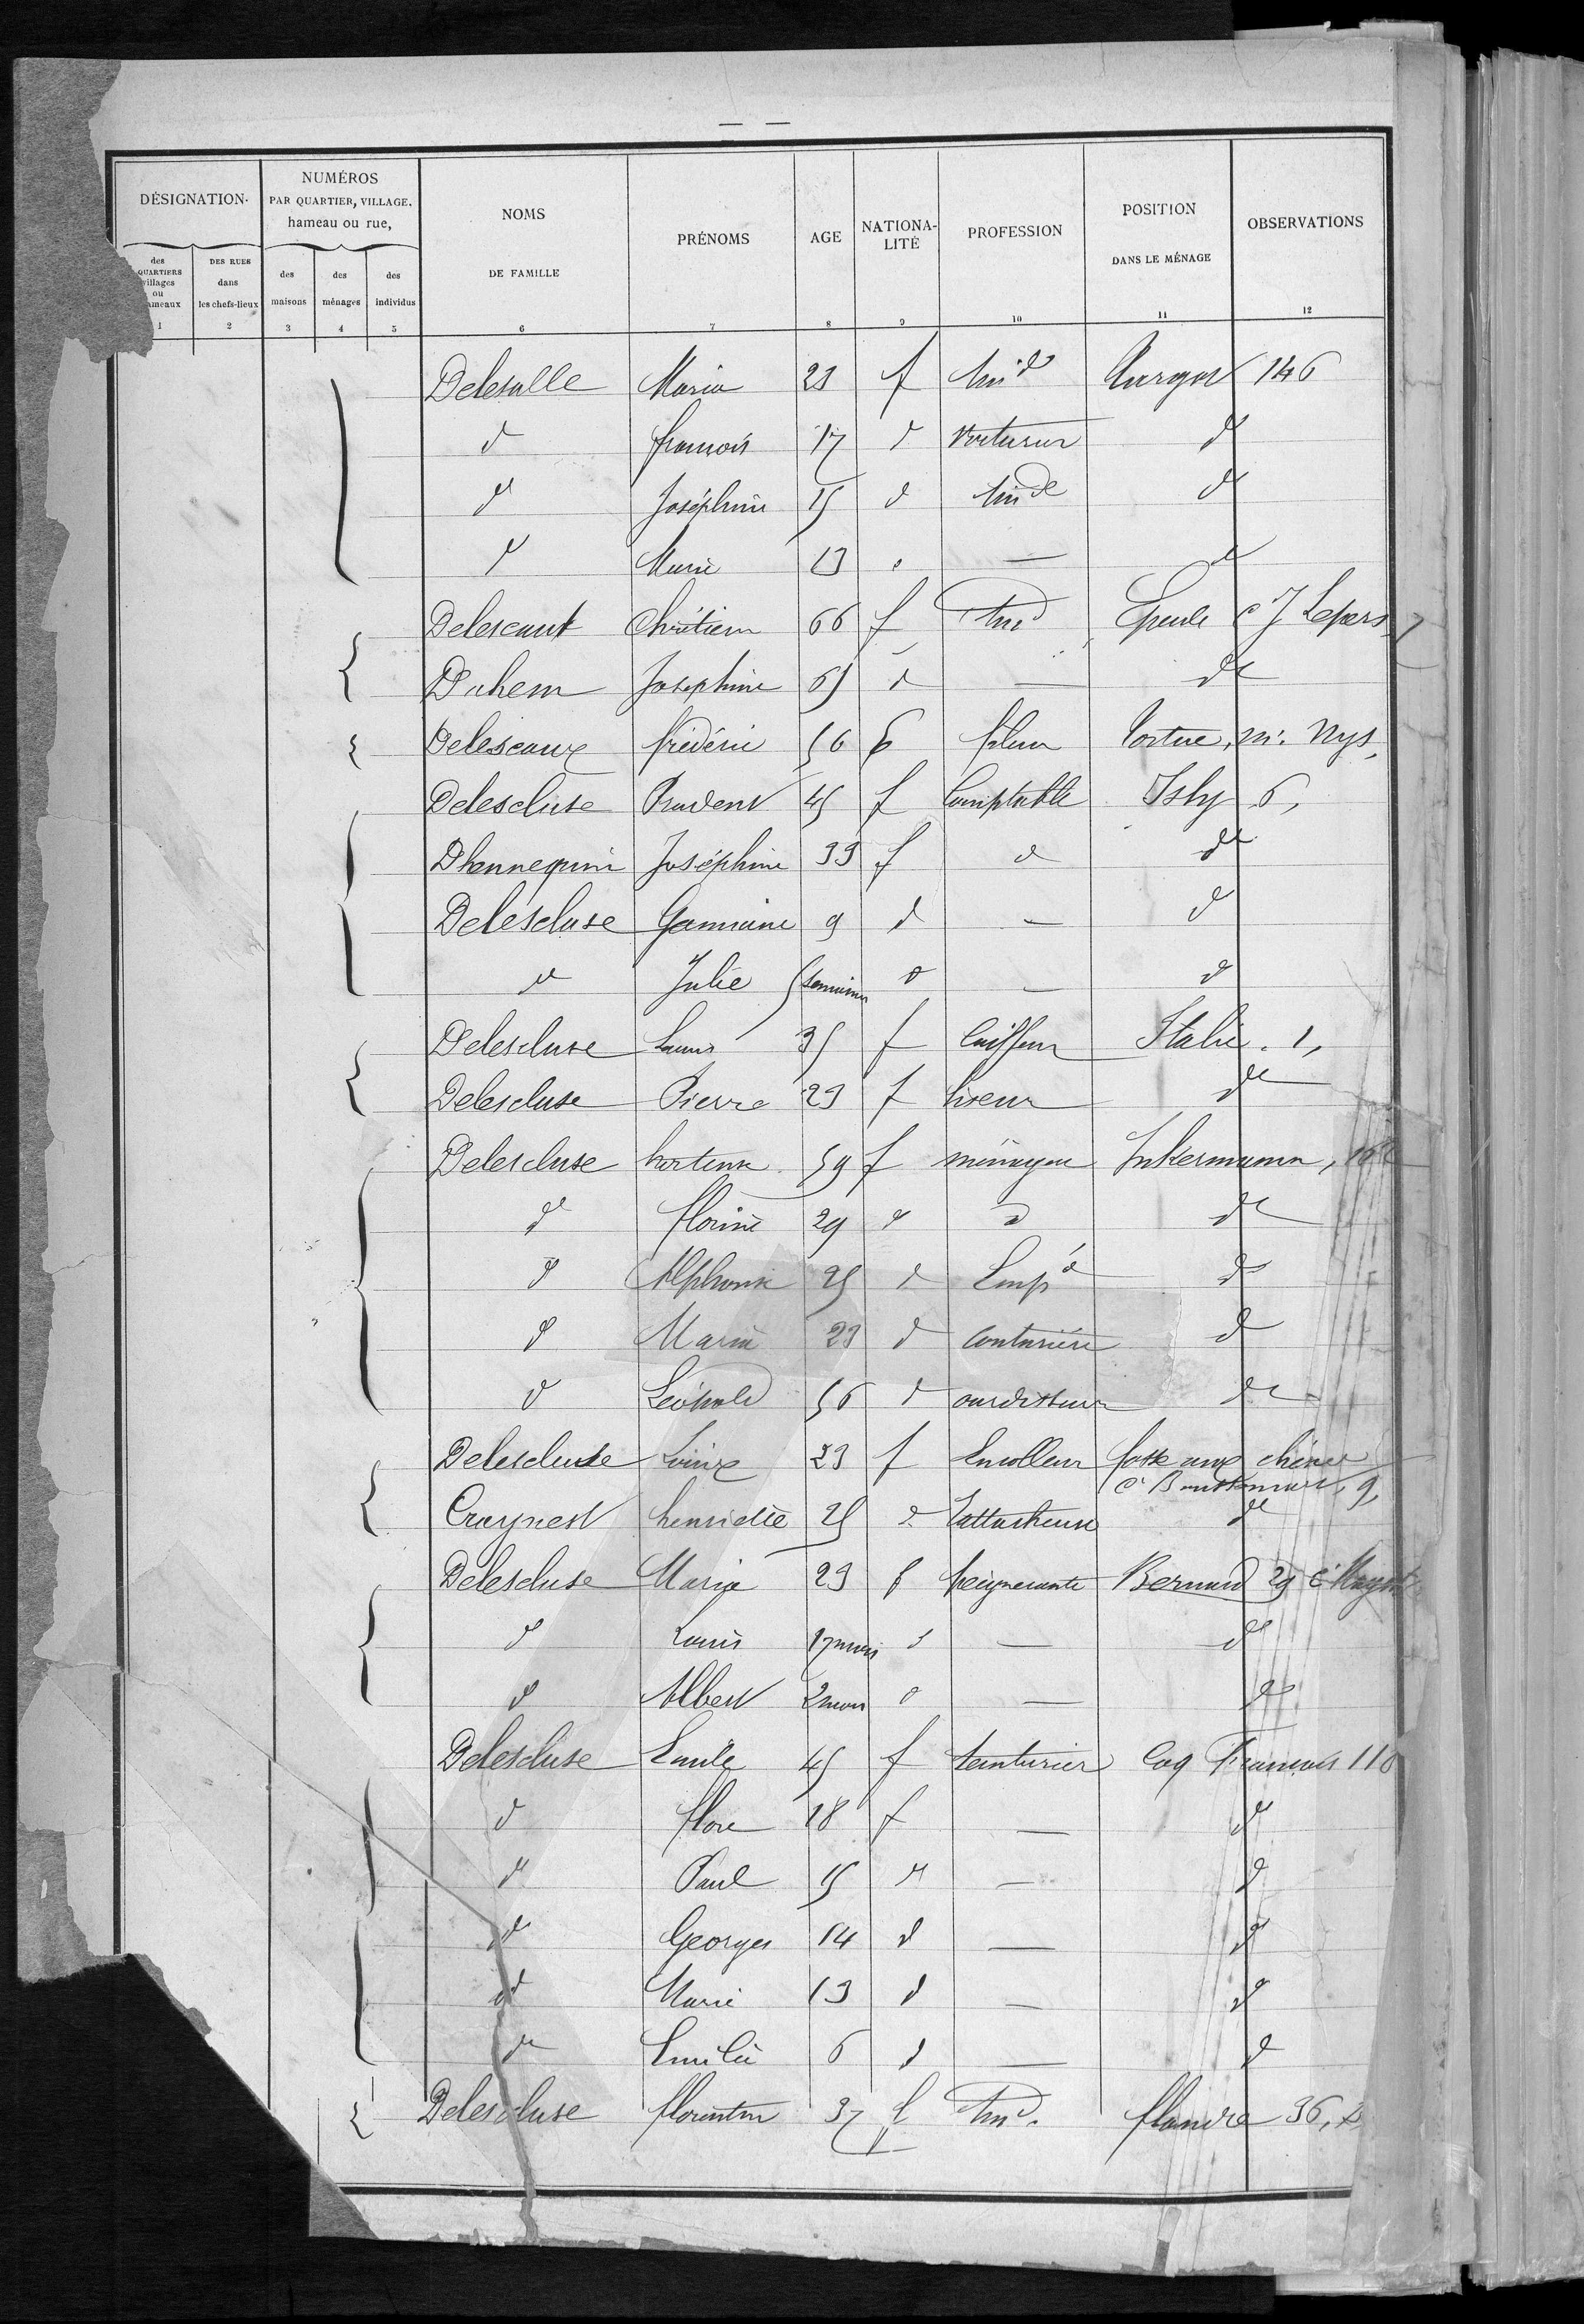 DÉSIGNATION.
NUMÉROS
PAR QUARTIER, VILLAGE,
hameau ou rue,
NOMS
DE FAMILLE
PRÉNOMS
AGE
NATIONA-
LITÉ
PROFESSION
POSITION
DANS LE MÉNAGE
OBSERVATIONS
des QUARTIERS villages ou hameaux
DES RUES dans les chefs-lieux
des maisons
des ménages
des individus
1 2 3 4 5 6 7 8 9 10 11 12
Delesalle Maria 23 f 146
d François 17 d d
d Joséphine 15 d d
d Marie 13 d — d
Delescaut Chrétien 66 f Epeule c J Lepers
Duhem Josephine 65 d — d
Delescaux frédéric 56 fileur Tortue, Nys,
Delescluse Prudent 45 f Comptable Isly 6,
Dhennequin Joséphine 33 f d d
Delescluse Germaine 9 d — d
d Julie 5 semaines d — d
Delescluse Louis 35 f Coiffeur Italie. 1,
Delescluse Pierre 23 f liseur d
Delescluse hortense 59 f ménagère Inkermann,
d florine 29 d d d
d Alphonse 25 d Empé d
d Marie 23 d Couturière d
d Léopold 56 d ourdisseur d
Delescluse Louise 23 f Encolleur fosse aux chênes
9,
Cruynest henriette 25 d rattacheuse d
Delescluse Maria 23 f Bernard 29
d Louis 17 mois d — d
d Albert 2 mois d — d
Delescluse Emile 45 f teinturier Coq Français 110
d flore 18 f — d
d Paul 15 d — d
d Georges 14 d — d
d Marie 13 d — d
d Emilie 6 d — d
Delescluse florentin 37 f flandre 36,